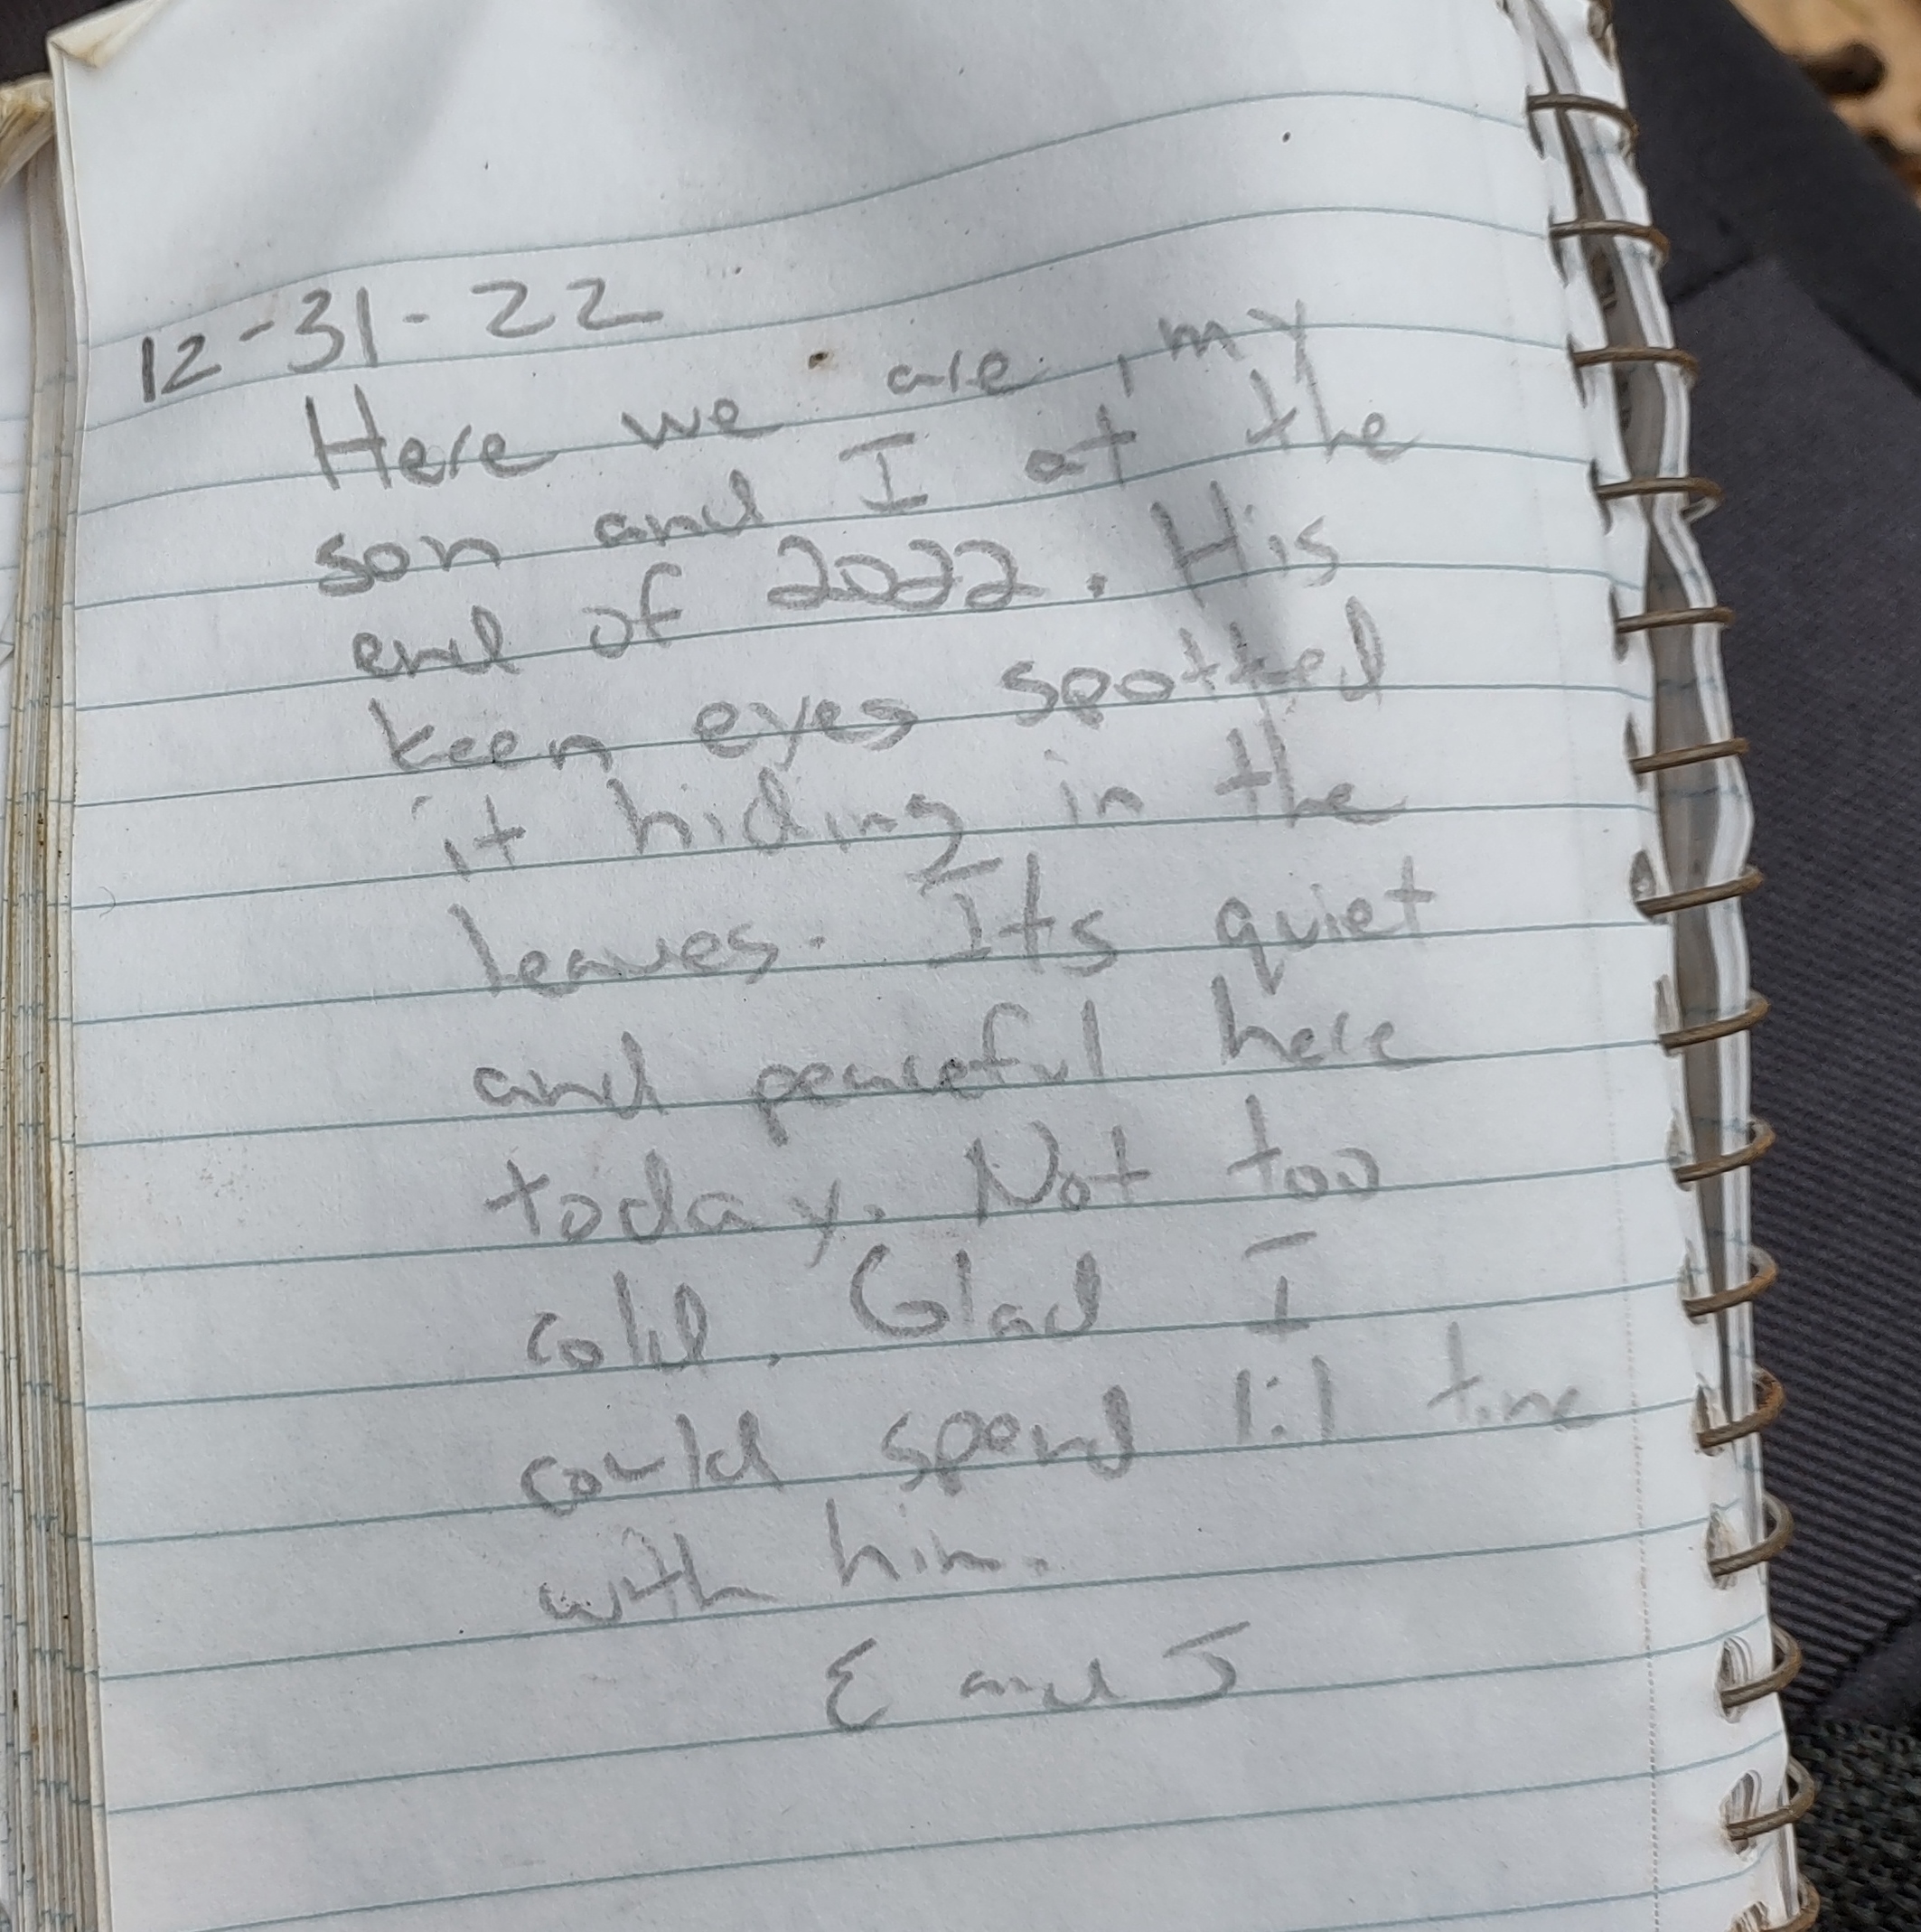 12-31-22
Here we are, my
son and I at the
end of 2022. His
keen eyes spotted
it hiding in the
leaves. Its quiet
and peaceful here
today. Not too
cold. Glad I
could spend lil time
with him.
E and J